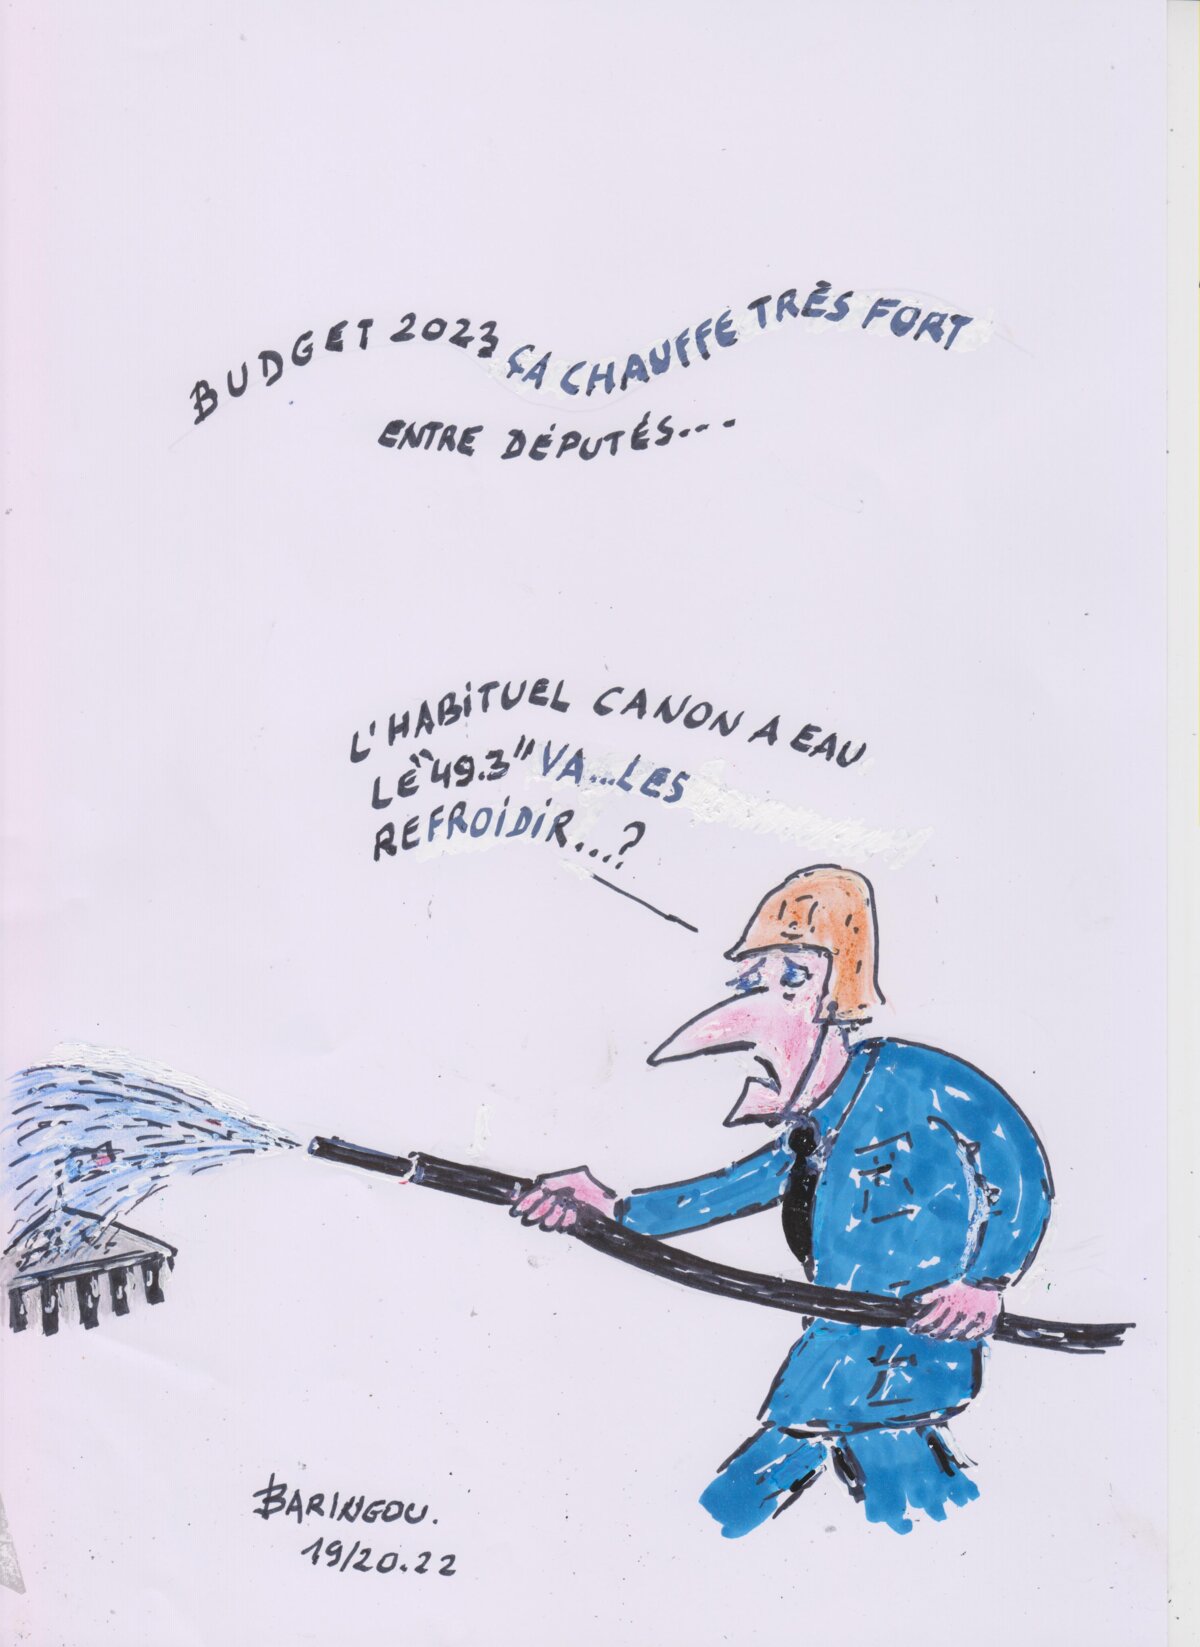 BUDGET 2023 ÇA CHAUFFE TRÈS FORT
ENTRE DÉPUTÉS...
L'HABITUEL CANON A EAU
LE "49.3" VA...LES
REFROIDIR...?
BARINGOU.
19/20.22